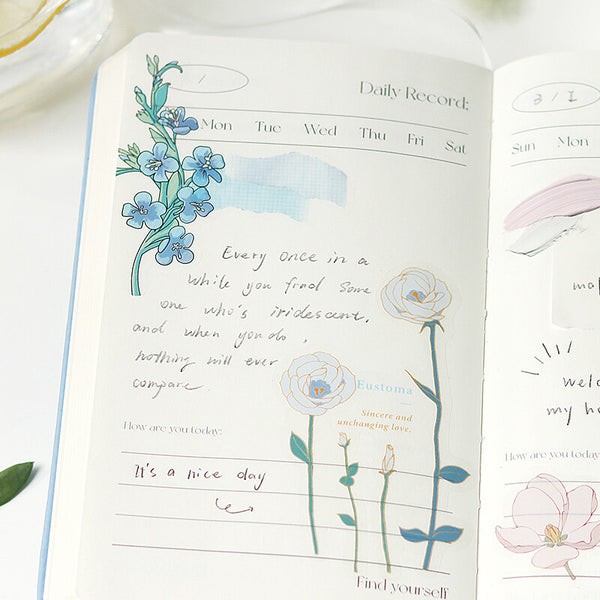 Daily Record:
Mon Tue Wed Thu Fri Sat
Every once in a
while you find some
one who's iridescent,
and when you do,
nothing will ever
compare
Eustoma
Sincere and
unchanging love.
How are you today:
It's a nice day
Find yourself
3/1
Sun Mon
welc
my h
How are you today